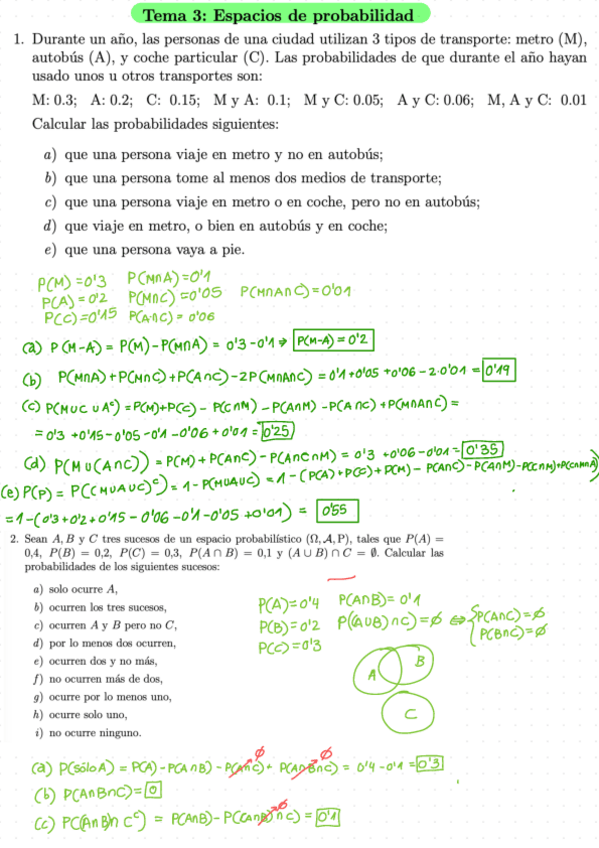 Tema 3: Espacios de probabilidad
1. Durante un año, las personas de una ciudad utilizan 3 tipos de transporte: metro (M),
autobús (A), y coche particular (C). Las probabilidades de que durante el año hayan
usado unos u otros transportes son:
M: 0.3; A: 0.2; C: 0.15; M y A: 0.1; M y C: 0.05; A y C: 0.06; M, A y C: 0.01
Calcular las probabilidades siguientes:
a) que una persona viaje en metro y no en autobús;
b) que una persona tome al menos dos medios de transporte;
c) que una persona viaje en metro o en coche, pero no en autobús;
d) que viaje en metro, o bien en autobús y en coche;
e) que una persona vaya a pie.
P(M)=0'3 P(M∩A)=0'1
P(A)=0'2 P(M∩C)=0'05 P(M∩A∩C)=0'01
P(C)=0'15 P(A∩C)=0'06
(a) P(M-A) = P(M)-P(M∩A) = 0'3-0'1 → P(M-A)=0'2
(b) P(M∩A)+P(M∩C)+P(A∩C)-2P(M∩A∩C)=0'1+0'05+0'06-2·0'01=0'19
(c) P(M∪C∪Aᶜ)=P(M)+P(C)-P(C∩M)-P(A∩M)-P(A∩C)+P(M∩A∩C)=
=0'3+0'15-0'05-0'1-0'06+0'01=0'25
(d) P(M∪(A∩C))=P(M)+P(A∩C)-P(A∩C∩M)=0'3+0'06-0'01=0'35
(e) P(P)=P((M∪A∪C)ᶜ)=1-P(M∪A∪C)=1-(P(A)+P(C)+P(M)-P(A∩C)-P(A∩M)-P(C∩M)+P(C∩M∩A)
=1-(0'3+0'2+0'15-0'06-0'1-0'05+0'01)=0'55
2. Sean A, B y C tres sucesos de un espacio probabilístico (Ω, 𝒜, P), tales que P(A) =
0,4, P(B) = 0,2, P(C) = 0,3, P(A ∩ B) = 0,1 y (A ∪ B) ∩ C = ∅. Calcular las
probabilidades de los siguientes sucesos:
a) solo ocurre A,
b) ocurren los tres sucesos,
c) ocurren A y B pero no C,
d) por lo menos dos ocurren,
e) ocurren dos y no más,
f) no ocurren más de dos,
g) ocurre por lo menos uno,
h) ocurre solo uno,
i) no ocurre ninguno.
P(A)=0'4 P(A∩B)=0'1
P(B)=0'2 P((A∪B)∩C)=∅ ⇔ {P(A∩C)=∅
P(C)=0'3 P(B∩C)=∅
A B
C
(a) P(sólo A)=P(A)-P(A∩B)-P(A∩C)+P(A∩B∩C)=0'4-0'1=0'3
∅ ∅
(b) P(A∩B∩C)=0
(c) P((A∩B)∩Cᶜ)=P(A∩B)-P((A∩B)∩C)=0'1
∅